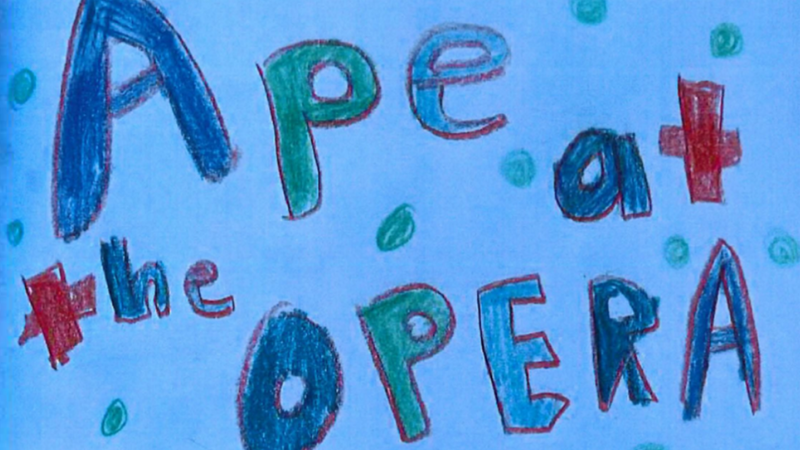 Ape at
the OPERA